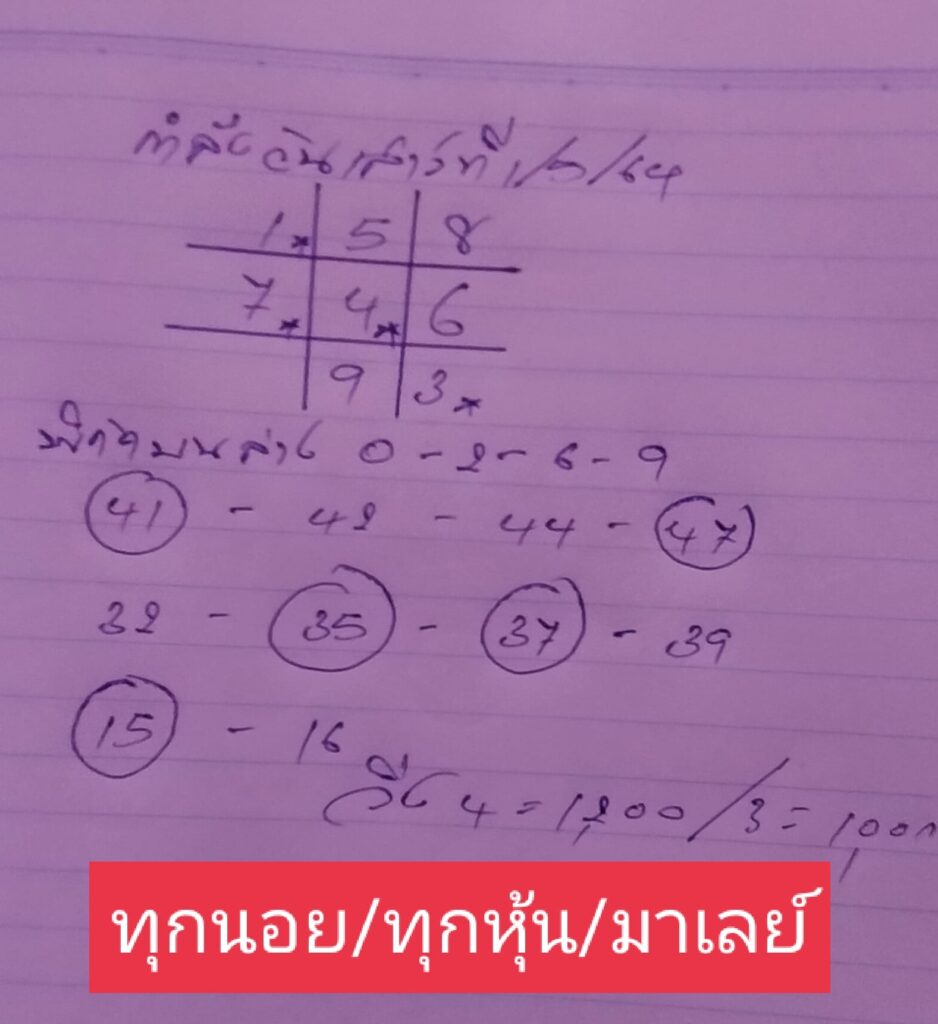 กำลังวันเสาร์ที่
1* 5 8
7* 4* 6
9 3*
พิกัดบนล่าง 0 - 2 - 6 - 9
41 - 42 - 44 - 47
32 - 35 - 37 - 39
15 - 16
วิ่ง 4 = 1,200 / 3 =
ทุกนอย/ทุกหุ้น/มาเลย์